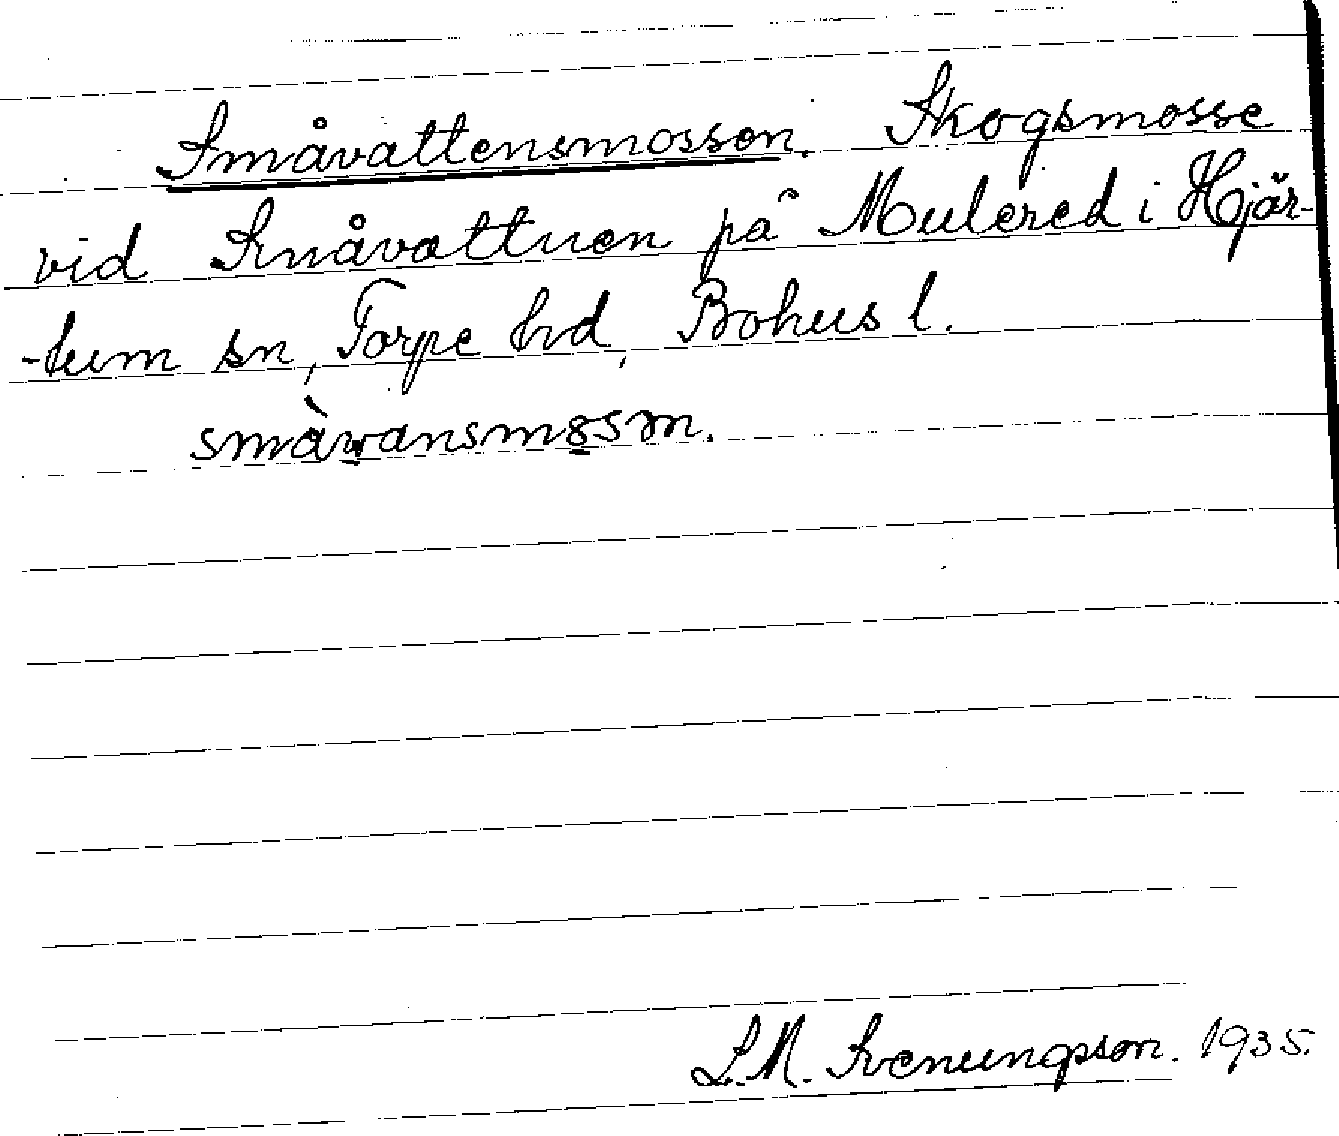 Småvattensmossen. Skogsmosse
vid Småvattnen på Mulered i Hjär-
-tum sn, Torpe hd, Bohus l.
småvansmosm.
L.M. Svenungsson. 1935.